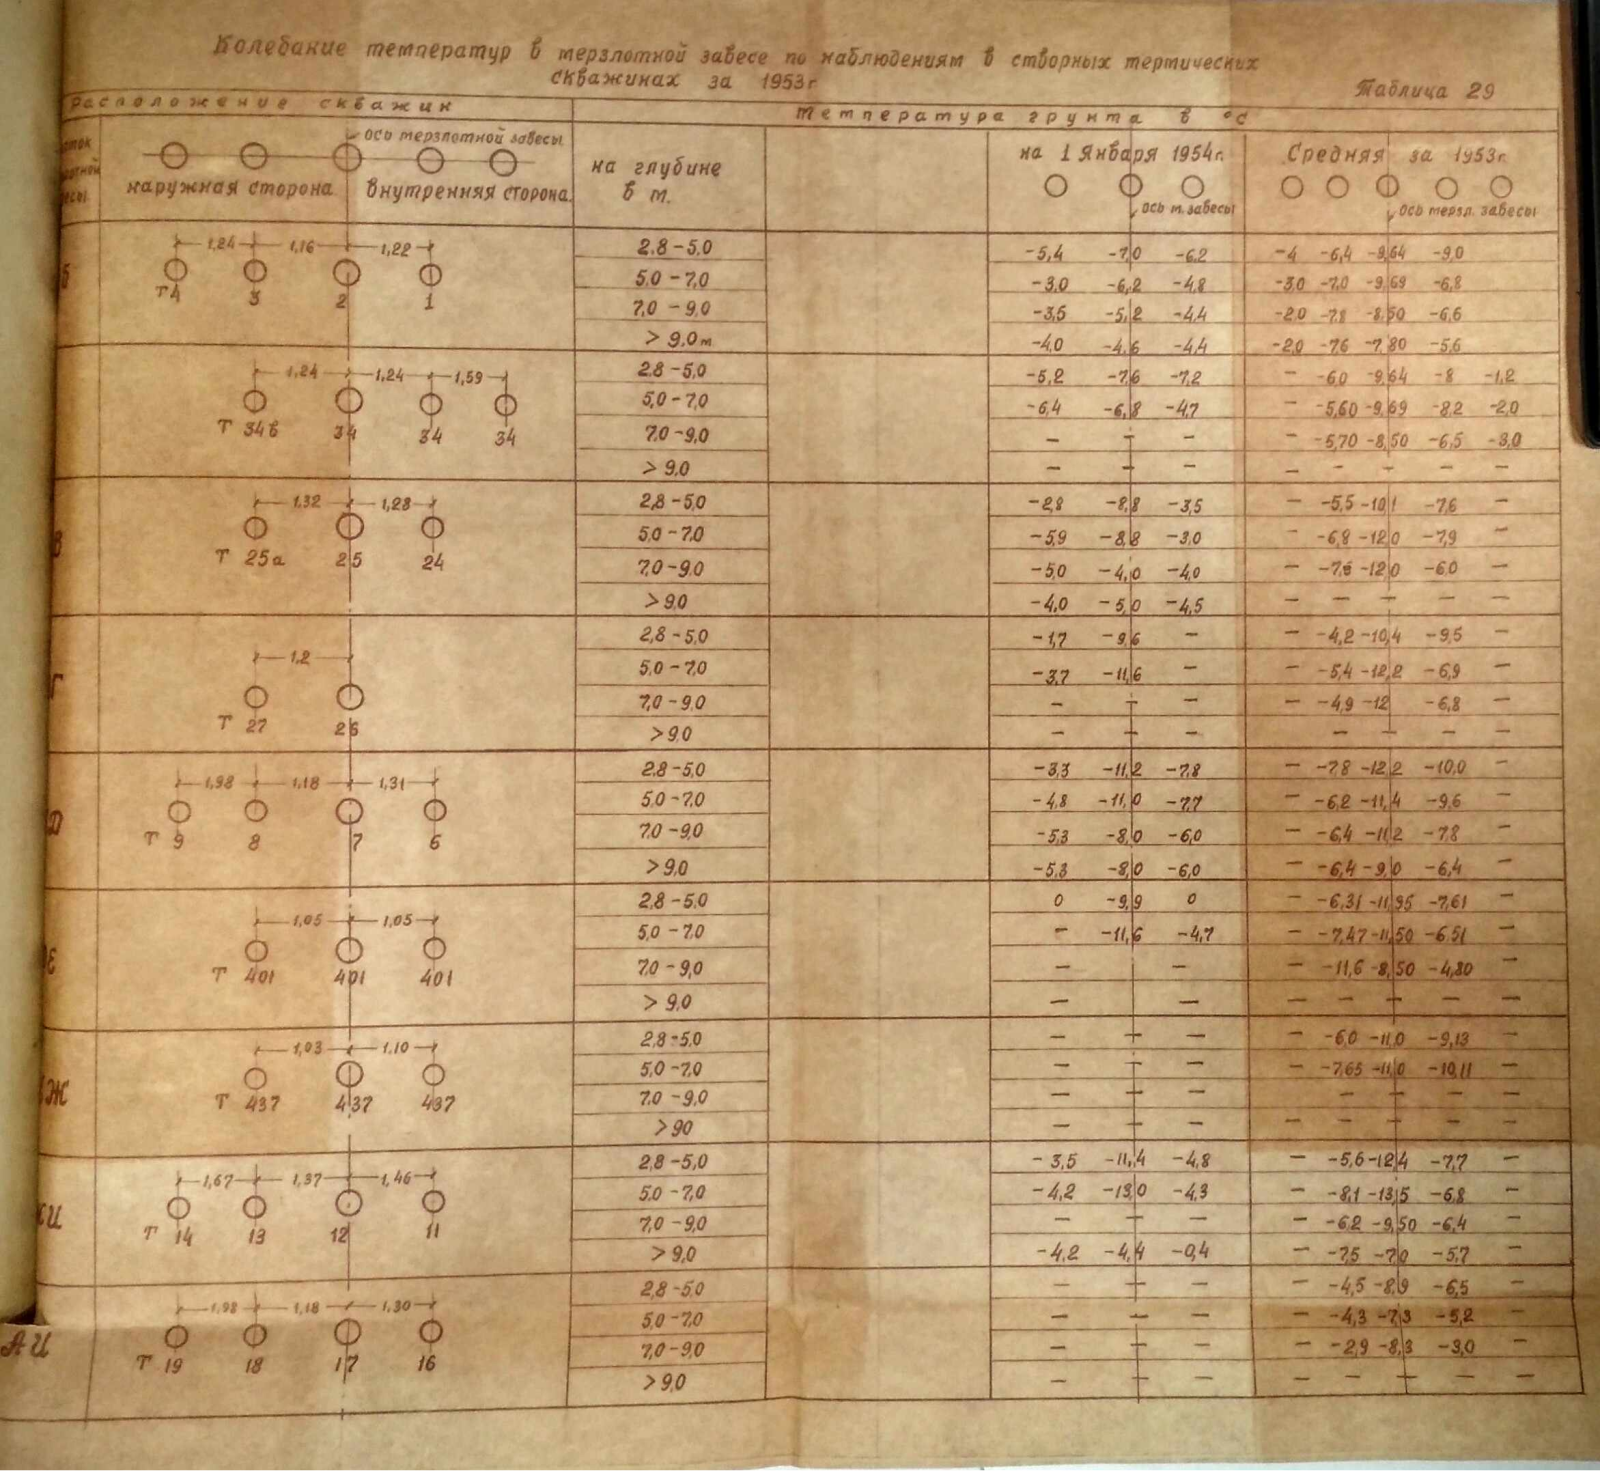 Колебание температур в мерзлотной завесе по наблюдениям в створных термических
скважинах за 1953г
Таблица 29
Расположение скважин
Температура грунта в °С
ось мерзлотной завесы
наружная сторона внутренняя сторона
на глубине
в м.
на 1 Января 1954г.
ось м. завесы
Средняя за 1953г.
ось мерзл. завесы
Б
1,24 1,16 1,22
Т4 3 2 1
2.8-5.0 -5,4 -7,0 -6,2 -4 -6,4 -9,64 -9,0
5.0-7,0 -3,0 -6,2 -4,8 -3,0 -7,0 -9,69 -6,8
7,0-9,0 -3,5 -5,2 -4,4 -2,0 -7,8 -8,50 -6,6
> 9,0м -4,0 -4,6 -4,4 -2,0 -7,6 -7,80 -5,6
1,24 1,24 1,59
Т 34б 34 34 34
2,8-5,0 -5,2 -7,6 -7,2 - -6,0 -9,64 -8 -1,2
5,0-7,0 -6,4 -6,8 -4,7 - -5,60 -9,69 -8,2 -2,0
7,0-9,0 - - - - -5,70 -8,50 -6,5 -3,0
> 9,0 - - - - - - - -
В
1,32 1,28
Т 25а 25 24
2,8-5,0 -2,8 -8,8 -3,5 - -5,5 -10,1 -7,6 -
5,0-7,0 -5,9 -8,8 -3,0 - -6,8 -12,0 -7,9 -
7,0-9,0 -5,0 -4,0 -4,0 - -7,6 -12,0 -6,0 -
> 9,0 -4,0 -5,0 -4,5 - - - - -
Г
1,2
Т 27 26
2,8-5,0 -1,7 -9,6 - - -4,2 -10,4 -9,5 -
5,0-7,0 -3,7 -11,6 - - -5,4 -12,2 -6,9 -
7,0-9,0 - - - - -4,9 -12 -6,8 -
> 9,0 - - - - - - -
Д
1,98 1,18 1,31
Т 9 8 7 6
2,8-5,0 -3,3 -11,2 -7,8 - -7,8 -12,2 -10,0 -
5,0-7,0 -4,8 -11,0 -7,7 - -6,2 -11,4 -9,6 -
7,0-9,0 -5,3 -8,0 -6,0 - -6,4 -11,2 -7,8 -
> 9,0 -5,3 -8,0 -6,0 - -6,4 -9,0 -6,4 -
Е
1,05 1,05
Т 401 401 401
2,8-5,0 0 -9,9 0 - -6,31 -11,95 -7,61 -
5,0-7,0 - -11,6 -4,7 - -7,47 -11,50 -6,51 -
7,0-9,0 - - - -11,6 -8,50 -4,80 -
> 9,0 - - - - - - -
Ж
1,03 1,10
Т 437 437 437
2,8-5,0 - - - - -6,0 -11,0 -9,13
5,0-7,0 - - - - -7,65 -11,0 -10,11 -
7,0-9,0 - - - - - - -
> 90 - - - - - - - -
И
1,67 1,37 1,46
Т 14 13 12 11
2,8-5,0 -3,5 -11,4 -4,8 - -5,6 -12,4 -7,7 -
5,0-7,0 -4,2 -13,0 -4,3 - -8,1 -13,5 -6,8 -
7,0-9,0 - - - - -6,2 -9,50 -6,4 -
> 9,0 -4,2 -4,4 -0,4 - -7,5 -7,0 -5,7 -
АИ
1,98 1,18 1,30
Т 19 18 17 16
2,8-5,0 - - - - -4,5 -8,9 -6,5 -
5,0-7,0 - - - - -4,3 -7,3 -5,2 -
7,0-9,0 - - - - -2,9 -8,3 -3,0 -
> 9,0 - - - - - - - -